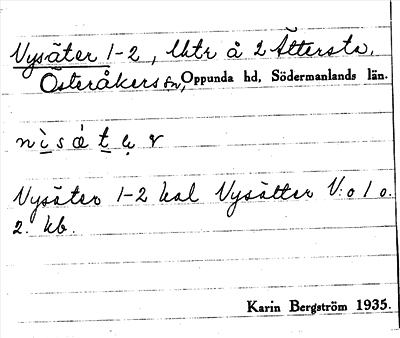 Vysäter 1-2, Utr å 2 Ättersta,
Österåkers sn, Oppunda hd, Södermanlands län.
Vysäter 1-2 kal Vysätter V:o 1 o.
2. kb.
Karin Bergström 1935.